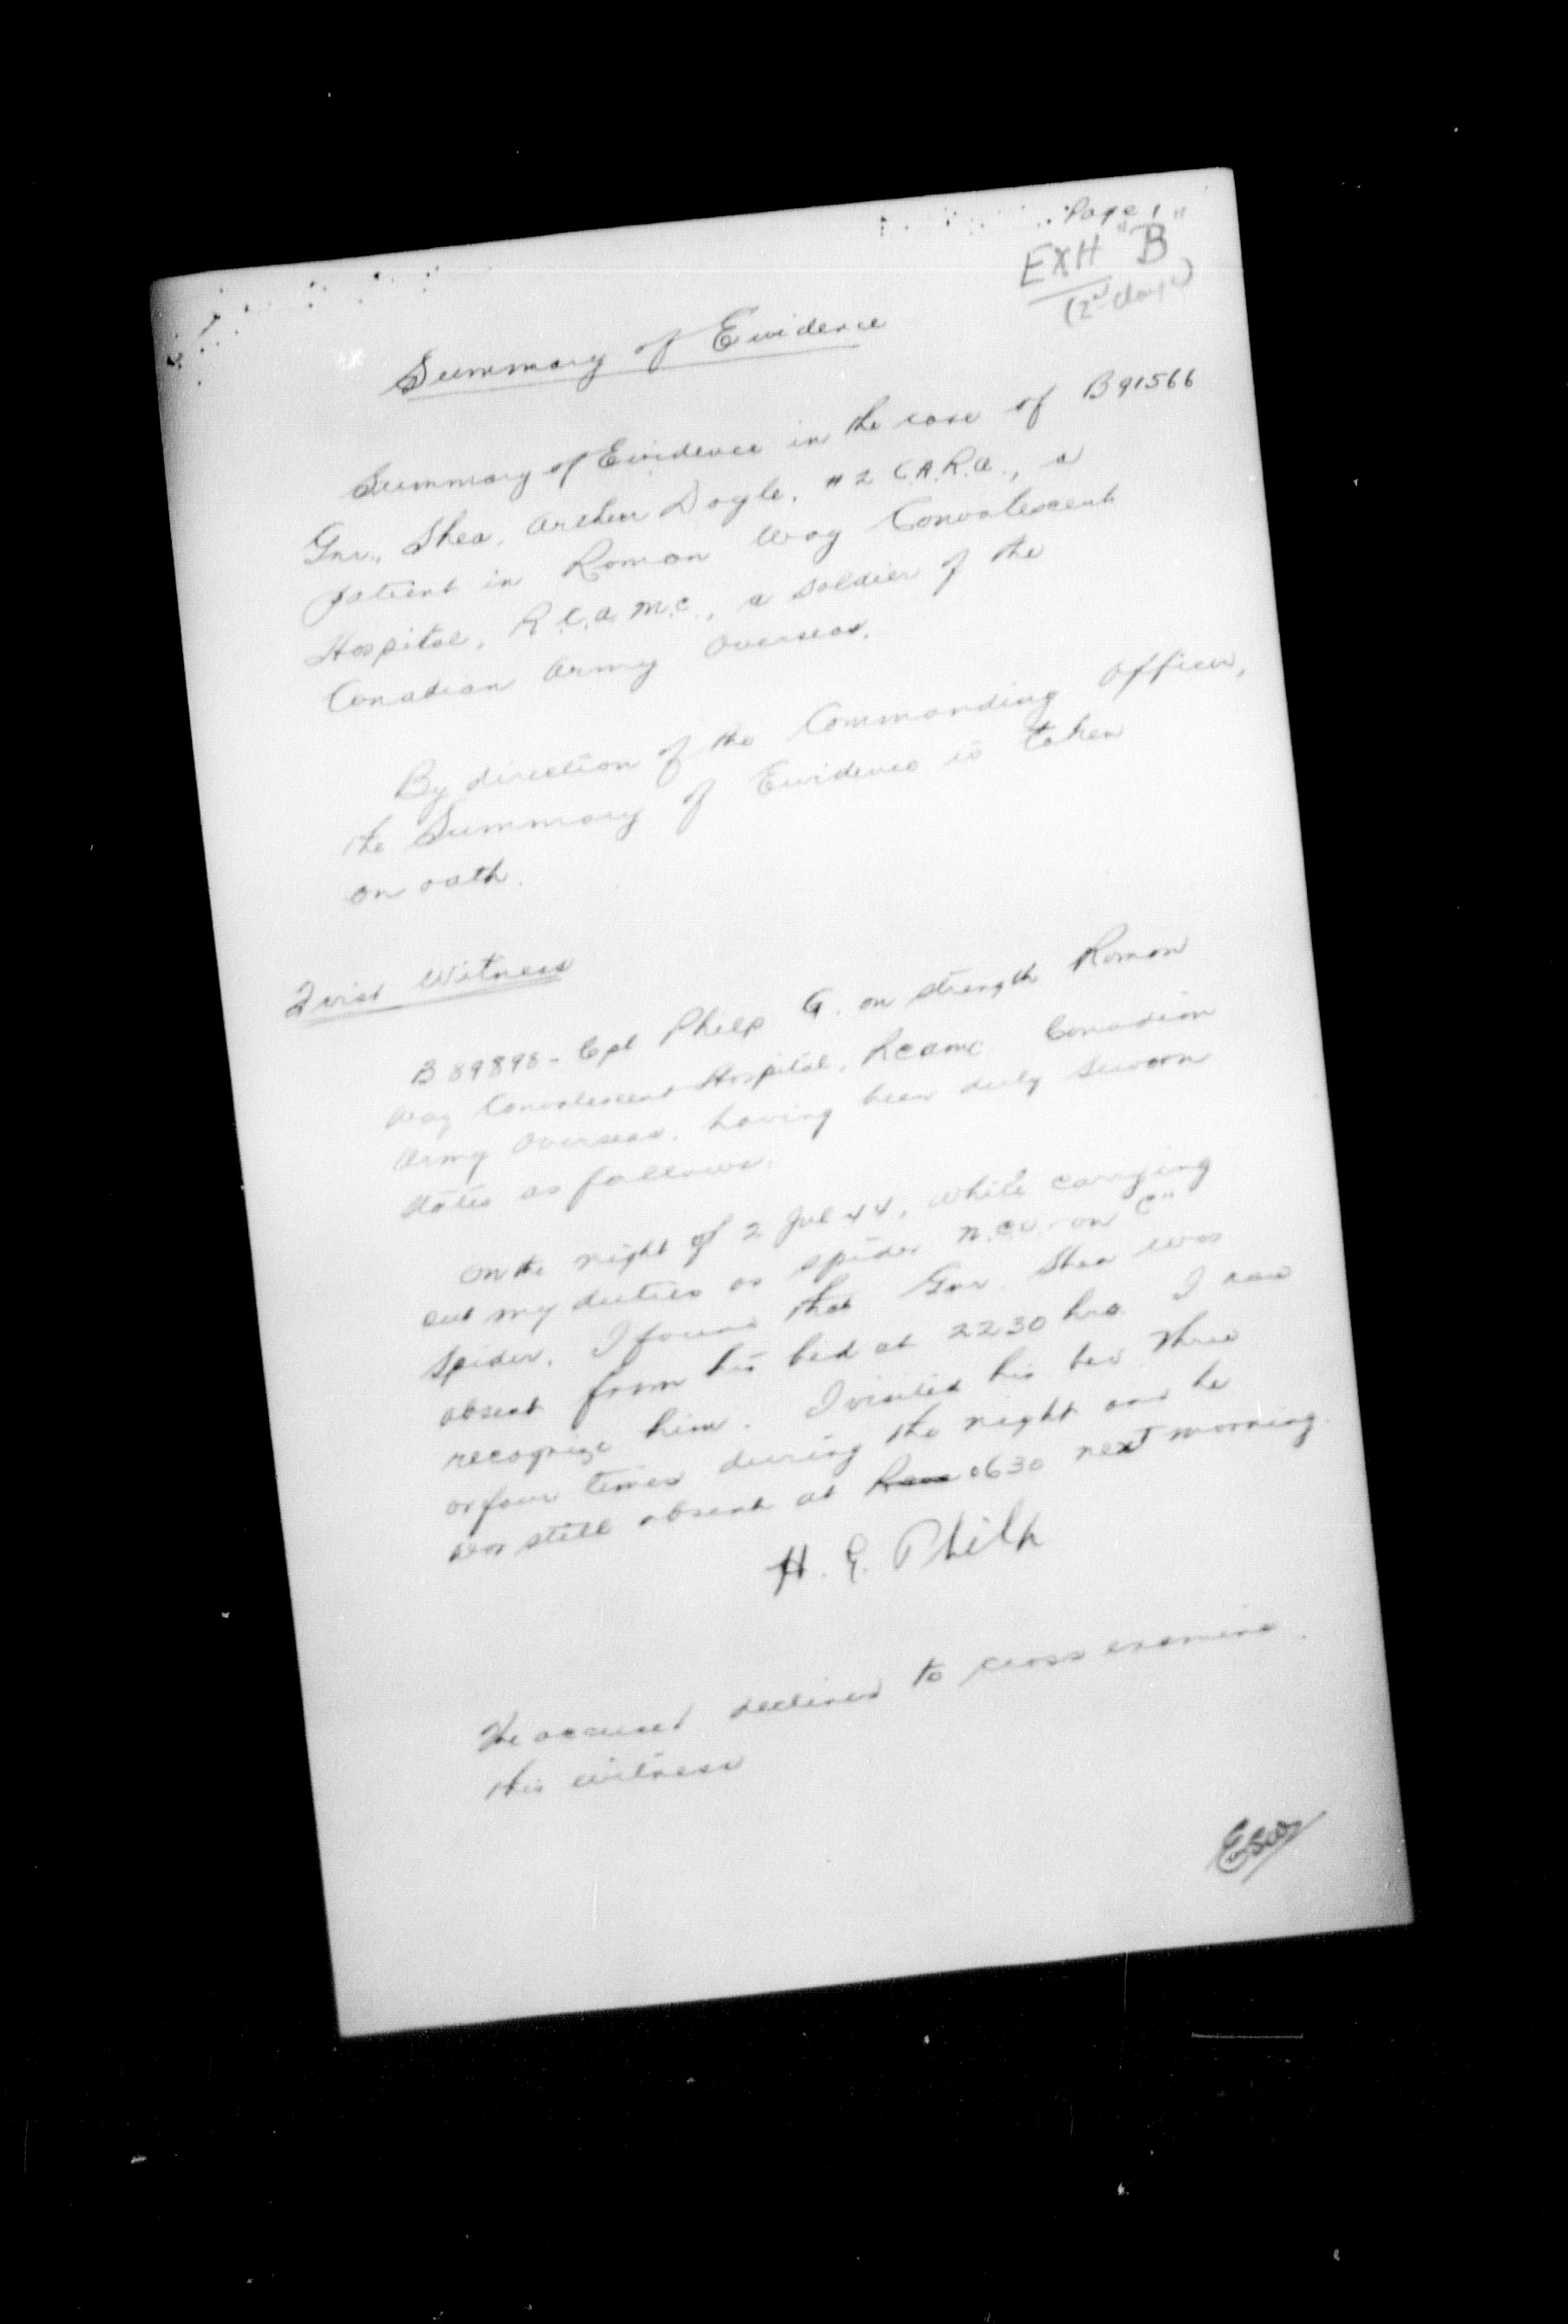 Page 1
EXH "B"
(2nd charge)
Summary of Evidence
Summary of Evidence in the case of B91566
Gnr., Shea, Arthur Doyle, #2 C.A.R.U., a
patient in Roman Way Convalescent
Hospital, R.C.A.M.C., a soldier of the
Canadian Army Overseas.
By direction of the Commanding Officer,
the Summary of Evidence is taken
on oath.
First Witness
B 89898 - Cpl Philp G. on strength Roman
Way Convalescent Hospital, RCAMC Canadian
Army Overseas, having been duly sworn
states as follows.
On the night of 2 Jul 44, while carrying
out my duties as spider N.C.O. on "C"
Spider, I found that Gnr. Shea was
absent from his bed at 2230 hrs. I can
recognize him. I visited his bed three
or four times during the night and he
was still absent at 0630 next morning.
H. G. Philp
The accused declines to cross examine
this witness